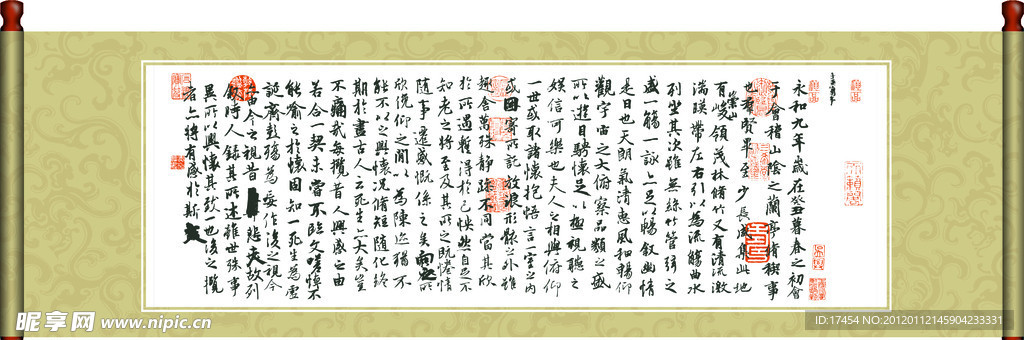 永和九年歲在癸丑暮春之初會
于會稽山陰之蘭亭脩稧事
也羣賢畢至少長咸集此地
有崇山峻領茂林脩竹又有清流激
湍暎帶左右引以為流觴曲水
列坐其次雖無絲竹管弦之
盛一觴一詠亦足以暢敘幽情
是日也天朗氣清惠風和暢仰
觀宇宙之大俯察品類之盛
所以遊目騁懷足以極視聽之
娛信可樂也夫人之相與俯仰
一世或取諸懷抱悟言一室之內
或因寄所託放浪形骸之外雖
趣舍萬殊靜躁不同當其欣
於所遇暫得於己怏然自足不
知老之將至及其所之既惓情
隨事遷感慨係之矣向之所
欣俛仰之閒以為陳迹猶不
能不以之興懷況脩短隨化終
期於盡古人云死生亦大矣豈
不痛哉每攬昔人興感之由
若合一契未嘗不臨文嗟悼不
能喻之於懷固知一死生為虛
誕齊彭殤為妄作後之視今
亦由今之視昔悲夫故列
敘時人錄其所述雖世殊事
異所以興懷其致一也後之攬
者亦將有感於斯文
昵享网 www.nipic.cn
ID:17454 NO:20120112145904233331